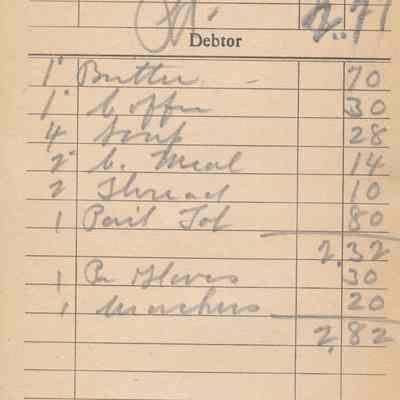 2.71
Debtor
1" Butter - 70
1" Coffee 30
4 Soap 28
2" C. Meal 14
2 Thread 10
1 Pail 80
2.32
1 Pr Gloves 30
1 20
2.82